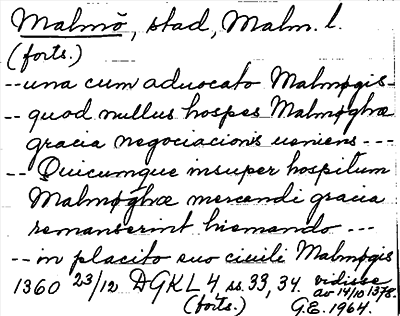 Malmö, stad, Malm. l.
(forts.)
-- una cum aduocato Malmøgis -
-- quod nullus hospes Malmøghæ
gracia negociacionis ueniens ---
-- Quicumque insuper hospitum
Malmøghæ mercandi gracia
remanserint hiemando ---
-- in placito suo ciuili Malmøgis
1360 23/12 DGKL 4 ss. 33, 34. vidisse
av 14/10 1378.
(forts.) G.E. 1964.